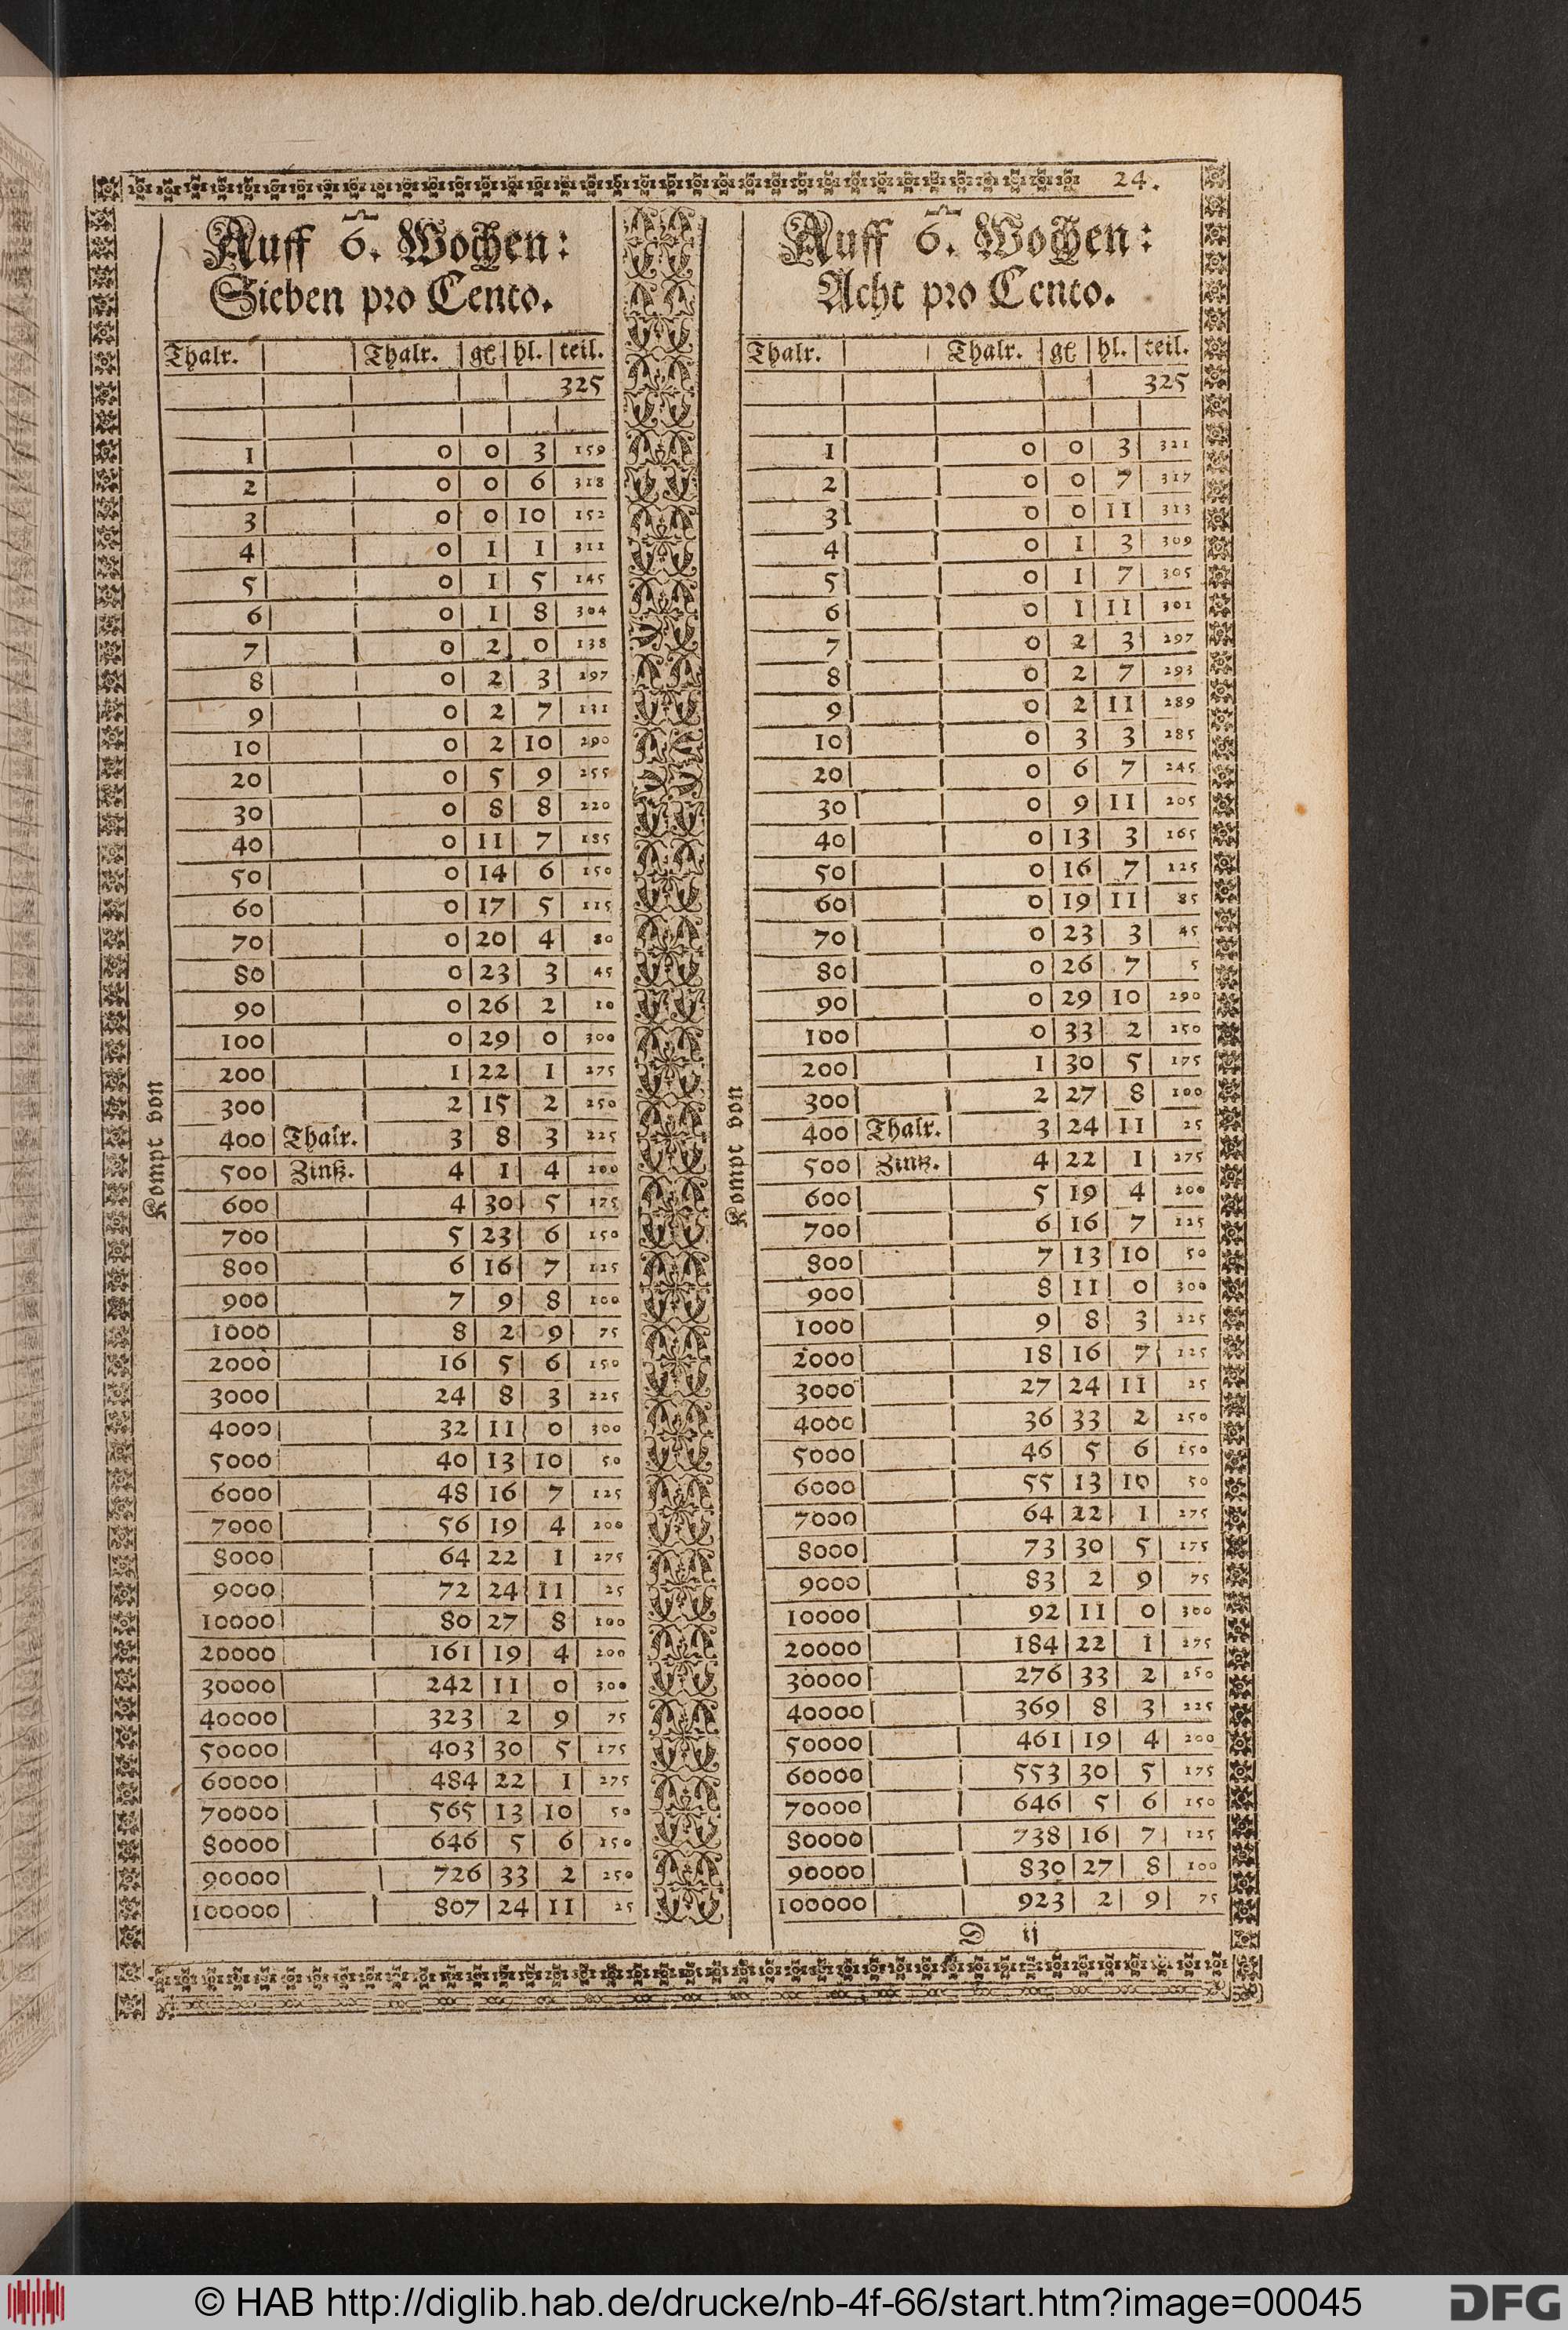 24.
Auff 6. Wochen:
Sieben pro Cento.
Thalr. | | Thalr. | gl | hl. | teil.
325
1 | 0 | 0 | 3 | 159
2 | 0 | 0 | 6 | 318
3 | 0 | 0 | 10 | 152
4 | 0 | 1 | 1 | 311
5 | 0 | 1 | 5 | 145
6 | 0 | 1 | 8 | 304
7 | 0 | 2 | 0 | 138
8 | 0 | 2 | 3 | 297
9 | 0 | 2 | 7 | 131
10 | 0 | 2 | 10 | 290
20 | 0 | 5 | 9 | 255
30 | 0 | 8 | 8 | 220
40 | 0 | 11 | 7 | 185
50 | 0 | 14 | 6 | 150
60 | 0 | 17 | 5 | 115
70 | 0 | 20 | 4 | 80
80 | 0 | 23 | 3 | 45
90 | 0 | 26 | 2 | 10
100 | 0 | 29 | 0 | 300
200 | 1 | 22 | 1 | 275
300 | 2 | 15 | 2 | 250
400 | Thalr. | 3 | 8 | 3 | 225
500 | Zinß. | 4 | 1 | 4 | 200
600 | 4 | 30 | 5 | 175
700 | 5 | 23 | 6 | 150
800 | 6 | 16 | 7 | 125
900 | 7 | 9 | 8 | 100
1000 | 8 | 2 | 9 | 75
2000 | 16 | 5 | 6 | 150
3000 | 24 | 8 | 3 | 225
4000 | 32 | 11 | 0 | 300
5000 | 40 | 13 | 10 | 50
6000 | 48 | 16 | 7 | 125
7000 | 56 | 19 | 4 | 200
8000 | 64 | 22 | 1 | 275
9000 | 72 | 24 | 11 | 25
10000 | 80 | 27 | 8 | 100
20000 | 161 | 19 | 4 | 200
30000 | 242 | 11 | 0 | 300
40000 | 323 | 2 | 9 | 75
50000 | 403 | 30 | 5 | 175
60000 | 484 | 22 | 1 | 275
70000 | 565 | 13 | 10 | 50
80000 | 646 | 5 | 6 | 150
90000 | 726 | 33 | 2 | 250
100000 | 807 | 24 | 11 | 25
Kompt von
Auff 6. Wochen:
Acht pro Cento.
Thalr. | | Thalr. | gl | hl. | teil.
325
1 | 0 | 0 | 3 | 321
2 | 0 | 0 | 7 | 317
3 | 0 | 0 | 11 | 313
4 | 0 | 1 | 3 | 309
5 | 0 | 1 | 7 | 305
6 | 0 | 1 | 11 | 301
7 | 0 | 2 | 3 | 297
8 | 0 | 2 | 7 | 293
9 | 0 | 2 | 11 | 289
10 | 0 | 3 | 3 | 285
20 | 0 | 6 | 7 | 245
30 | 0 | 9 | 11 | 205
40 | 0 | 13 | 3 | 165
50 | 0 | 16 | 7 | 125
60 | 0 | 19 | 11 | 85
70 | 0 | 23 | 3 | 45
80 | 0 | 26 | 7 | 5
90 | 0 | 29 | 10 | 290
100 | 0 | 33 | 2 | 250
200 | 1 | 30 | 5 | 175
300 | 2 | 27 | 8 | 100
400 | Thalr. | 3 | 24 | 11 | 25
500 | Zinß. | 4 | 22 | 1 | 275
600 | 5 | 19 | 4 | 200
700 | 6 | 16 | 7 | 125
800 | 7 | 13 | 10 | 50
900 | 8 | 11 | 0 | 300
1000 | 9 | 8 | 3 | 225
2000 | 18 | 16 | 7 | 125
3000 | 27 | 24 | 11 | 25
4000 | 36 | 33 | 2 | 250
5000 | 46 | 5 | 6 | 150
6000 | 55 | 13 | 10 | 50
7000 | 64 | 22 | 1 | 275
8000 | 73 | 30 | 5 | 175
9000 | 83 | 2 | 9 | 75
10000 | 92 | 11 | 0 | 300
20000 | 184 | 22 | 1 | 275
30000 | 276 | 33 | 2 | 250
40000 | 369 | 8 | 3 | 225
50000 | 461 | 19 | 4 | 200
60000 | 553 | 30 | 5 | 175
70000 | 646 | 5 | 6 | 150
80000 | 738 | 16 | 7 | 125
90000 | 830 | 27 | 8 | 100
100000 | 923 | 2 | 9 | 75
Kompt von
D ij
© HAB http://diglib.hab.de/drucke/nb-4f-66/start.htm?image=00045
DFG